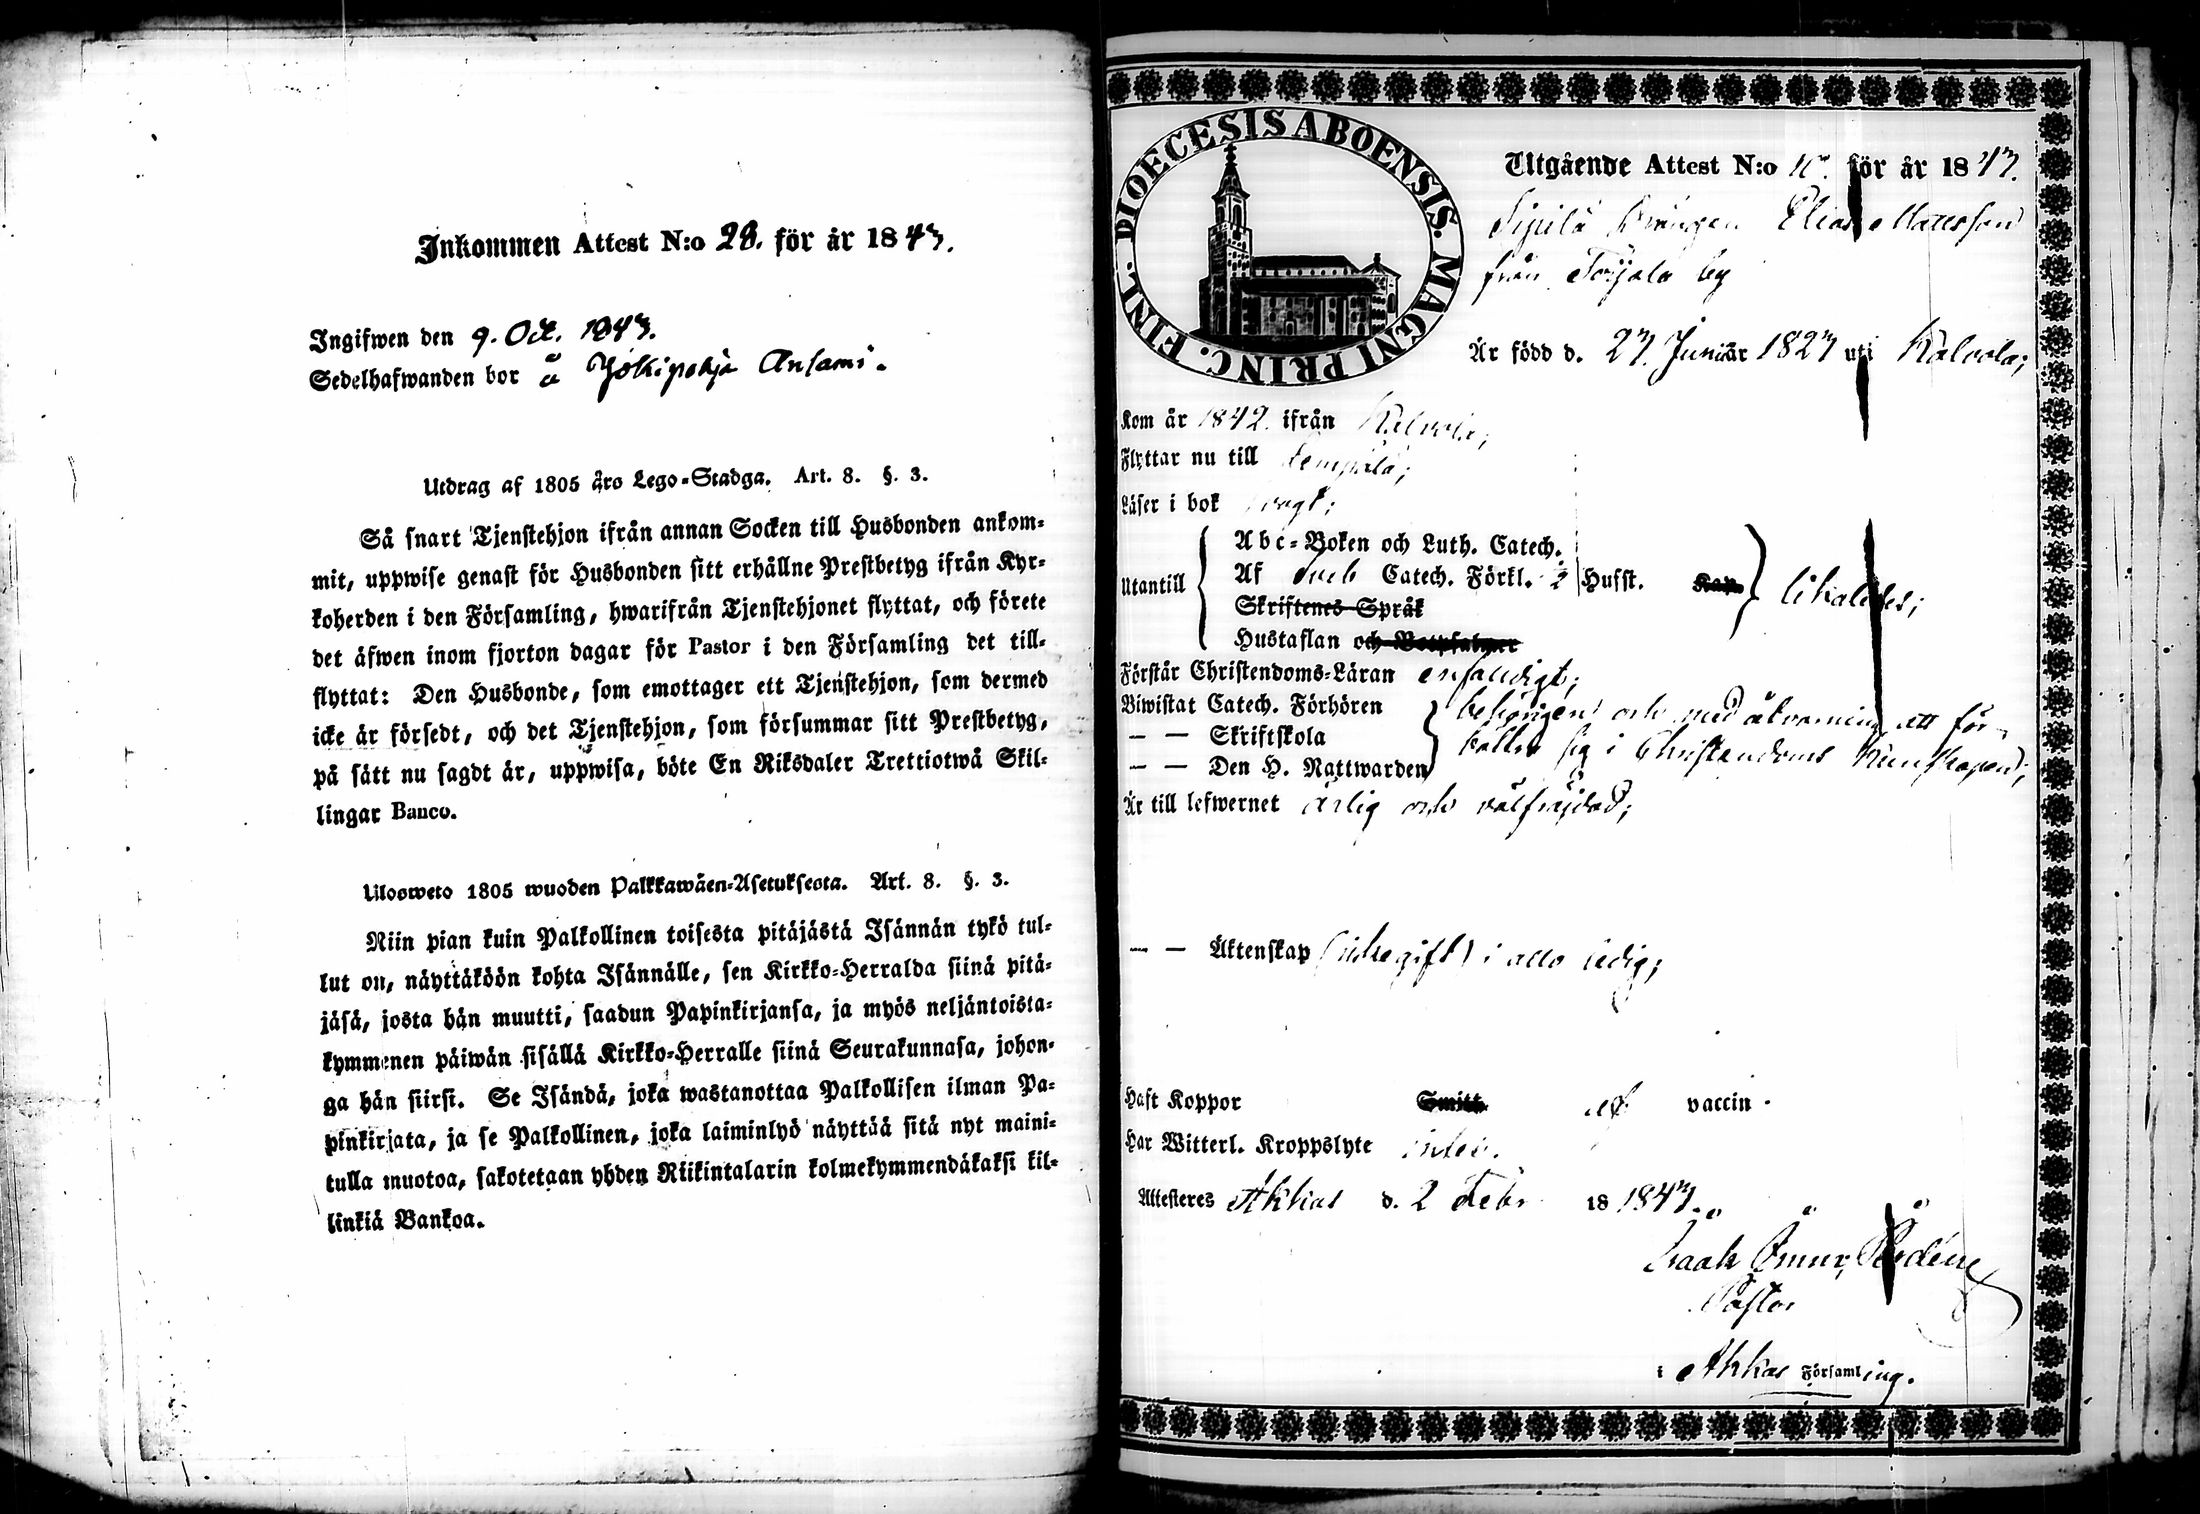 Inkommen Attest N:o 28. för år 1843.
Ingifwen den 9. Oct. 1843.
Sedelhafwanden bor å Jokipohja Ansami.
Utdrag af 1805 års Lego-Stadga. Art. 8. §. 3.
Så snart Tjenstehjon ifrån annan Socken till Husbonden ankom-
mit, uppwise genast för Husbonden sitt erhållne Prestbetyg ifrån Kyr-
koherden i den Församling, hwarifrån Tjenstehjonet flyttat, och förete
det äfwen inom fjorton dagar för Pastor i den Församling det till-
flyttat: Den Husbonde, som emottager ett Tjenstehjon, som dermed
icke är försedt, och det Tjenstehjon, som försummar sitt Prestbetyg,
på sätt nu sagdt är, uppwisa, böte En Riksdaler Trettiotwå Skil-
lingar Banco.
Ulosweto 1805 wuoden Palkkawäen-Asetuksesta. Art. 8. §. 3.
Niin pian kuin Palkollinen toisesta pitäjästä Isännän tykö tul-
lut on, näyttäköön kohta Isännälle, sen Kirkko-Herralda siinä pitä-
jäsä, josta hän muutti, saadun Papinkirjansa, ja myös neljäntoista-
kymmenen päiwän sisällä Kirkko-Herralle siinä Seurakunnasa, johon-
ga hän siirsi. Se Isändä, joka wastanottaa Palkollisen ilman Pa-
pinkirjata, ja se Palkollinen, joka laiminlyö näyttää sitä nyt maini-
tulla muotoa, sakotetaan yhden Riikintalarin kolmekymmendäkaksi kil-
linkiä Bankoa.
DIOECESIS ABOENSIS. MAGNI PRINC. FINL.
Utgående Attest N:o för år 1843.
Sipilä Drängen Elias Mattsson
från Toijala by
Är född d. 27. Juniär 1823 uti Kalvola;
Kom år 1842. ifrån Kalvola;
Flyttar nu till Lempälä;
Läser i bok svagt;
Utantill
Abc-Boken och Luth. Catech.
Af Sveb Catech. Förkl. 2 Husst. Kap
Skriftenes Språk
Hustaflan och Botpsalmer
Förstår Christendoms-Läran enfaldigt;
Biwistat Catech. Förhören
— — Skriftskola
— — Den H. Nattwarden
behörigen och med åtvarning att för-
kofra sig i Christendoms kunskapen;
Är till lefwernet ärlig och välfräjdad;
— — Äktenskap (icke gift) i allo ledig;
Haft Koppor Smitt. af vaccin.
Har Witterl. Kroppslyte intet.
Attesteres Akkas d. 2 Febr 18 1843.
Isaak
Pastor
i Akkas Församling.